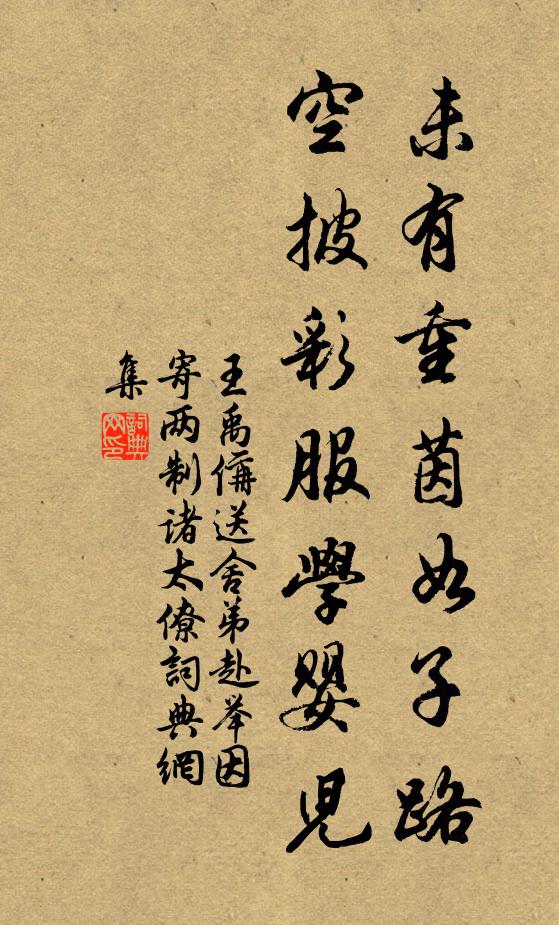 未有重茵如子路
空披彩服學嬰兒
王禹偁送舍弟赴举因
寄两制诸大僚詞典網
集
詞典網印